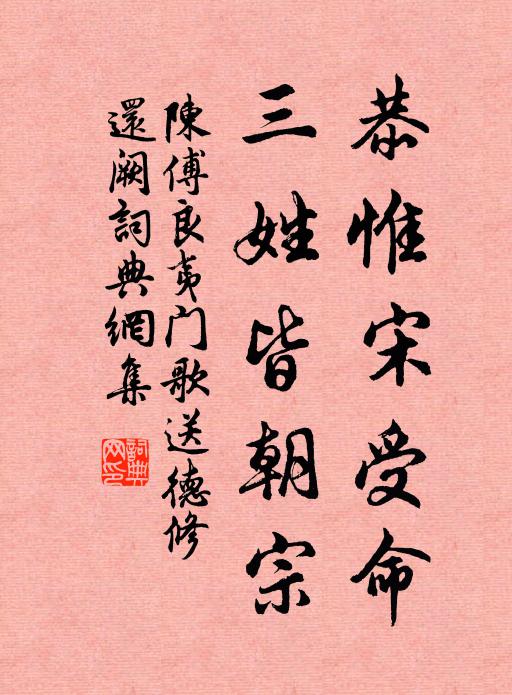 恭惟宋受命
三姓皆朝宗
陳傅良夷门歌送德修
還阙詞典網集
詞典网印